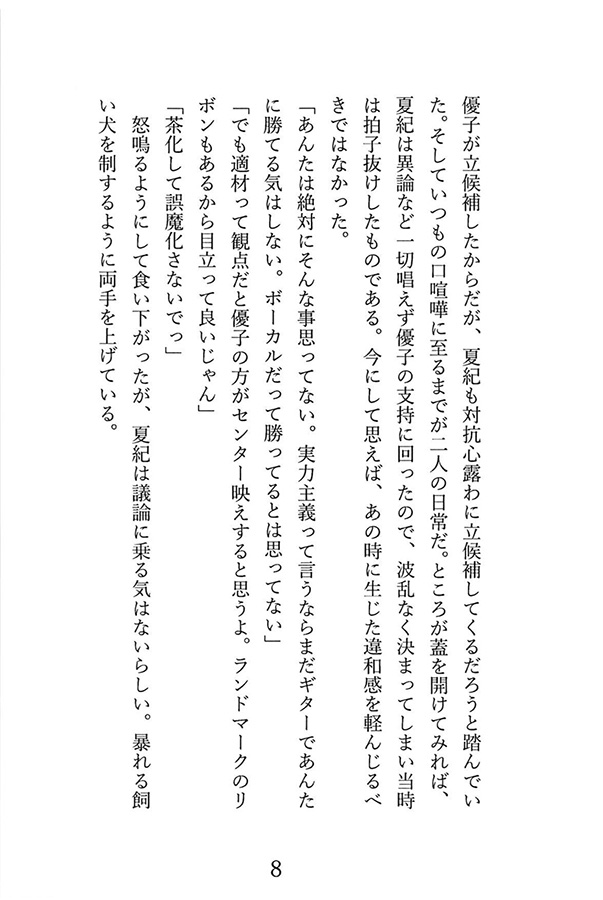 優子が立候補したからだが、夏紀も対抗心露わに立候補してくるだろうと踏んでい
た。そしていつもの口喧嘩に至るまでが二人の日常だ。ところが蓋を開けてみれば、
夏紀は異論など一切唱えず優子の支持に回ったので、波乱なく決まってしまい当時
は拍子抜けしたものである。今にして思えば、あの時に生じた違和感を軽んじるべ
きではなかった。
「あんたは絶対にそんな事思ってない。実力主義って言うならまだギターであんた
に勝てる気はしない。ボーカルだって勝ってるとは思ってない」
「でも適材って観点だと優子の方がセンター映えすると思うよ。ランドマークのリ
ボンもあるから目立って良いじゃん」
「茶化して誤魔化さないでっ」
怒鳴るようにして食い下がったが、夏紀は議論に乗る気はないらしい。暴れる飼
い犬を制するように両手を上げている。
8